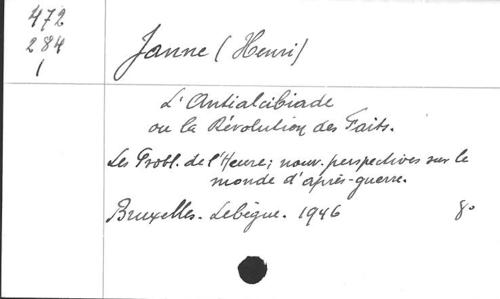 472
284
1
Janne (Henri)
L'Antialcibiade
ou la Révolution des Faits.
Les Probl. de l'Heure; nouv. perspectives sur le
monde d'après-guerre.
Bruxelles. Lebègue. 1946 8°